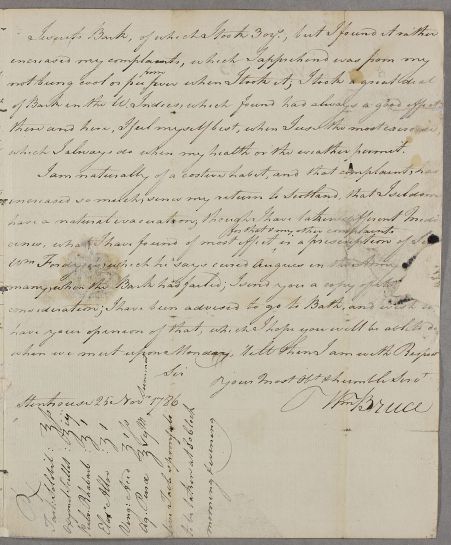 Jesuits Bark, of which I took 3 oz.s, but I found it rather
increased my complaints, which I apprehend was from my
not being cool or free from fever when I took it; I took a great deal
of Bark in the W. Indies, which found had always a good effect
there and here, I feel myself best, when I use the most exercise,
which I always do when my health or the weather permit.
I am naturally of a costive habit, and that complaint, has
increased so much, since my return to Scotland, that I seldom
have a natural evacuation, though I have taken different Medi
cines, what I have found of most effect is a prescription of Sr.
for that & my other complaints
Wm which he says cured Augues in the Army
many, when the Bark had failed; I send you a copy of
consideration; I have been advised to go to Bath, and
have your openion of that, which I hope you will be able to
when we meet upon Monday, till then I am with Respect
Sir
Your most Ot. & humble Servt
Stenhouse 25 Novr. 1786
Wm Bruce
Pulv. Rhubarb ʒ i
Elix. Aloes ʒ i
Aq. Pura
to be taken at 8 oClock
morning & evening